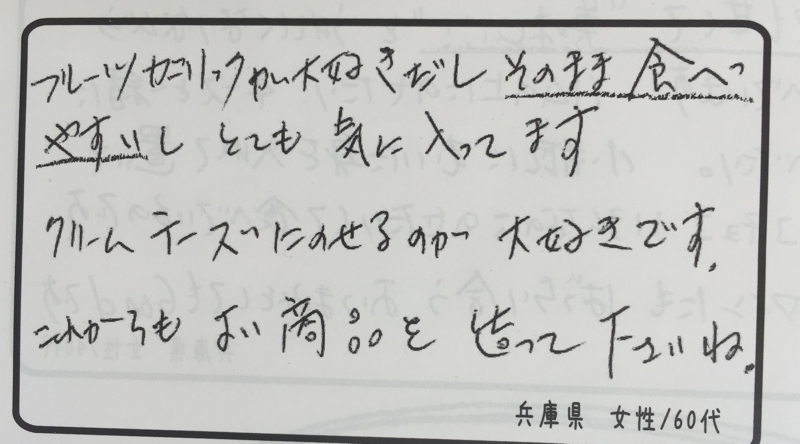 フルーツガーリックが大好きだし そのまま 食べ
やすいし とても 気に入ってます
クリームチーズにのせるのが 大好きです。
これからも よい商品を 造って 下さいね。
兵庫県 女性/60代